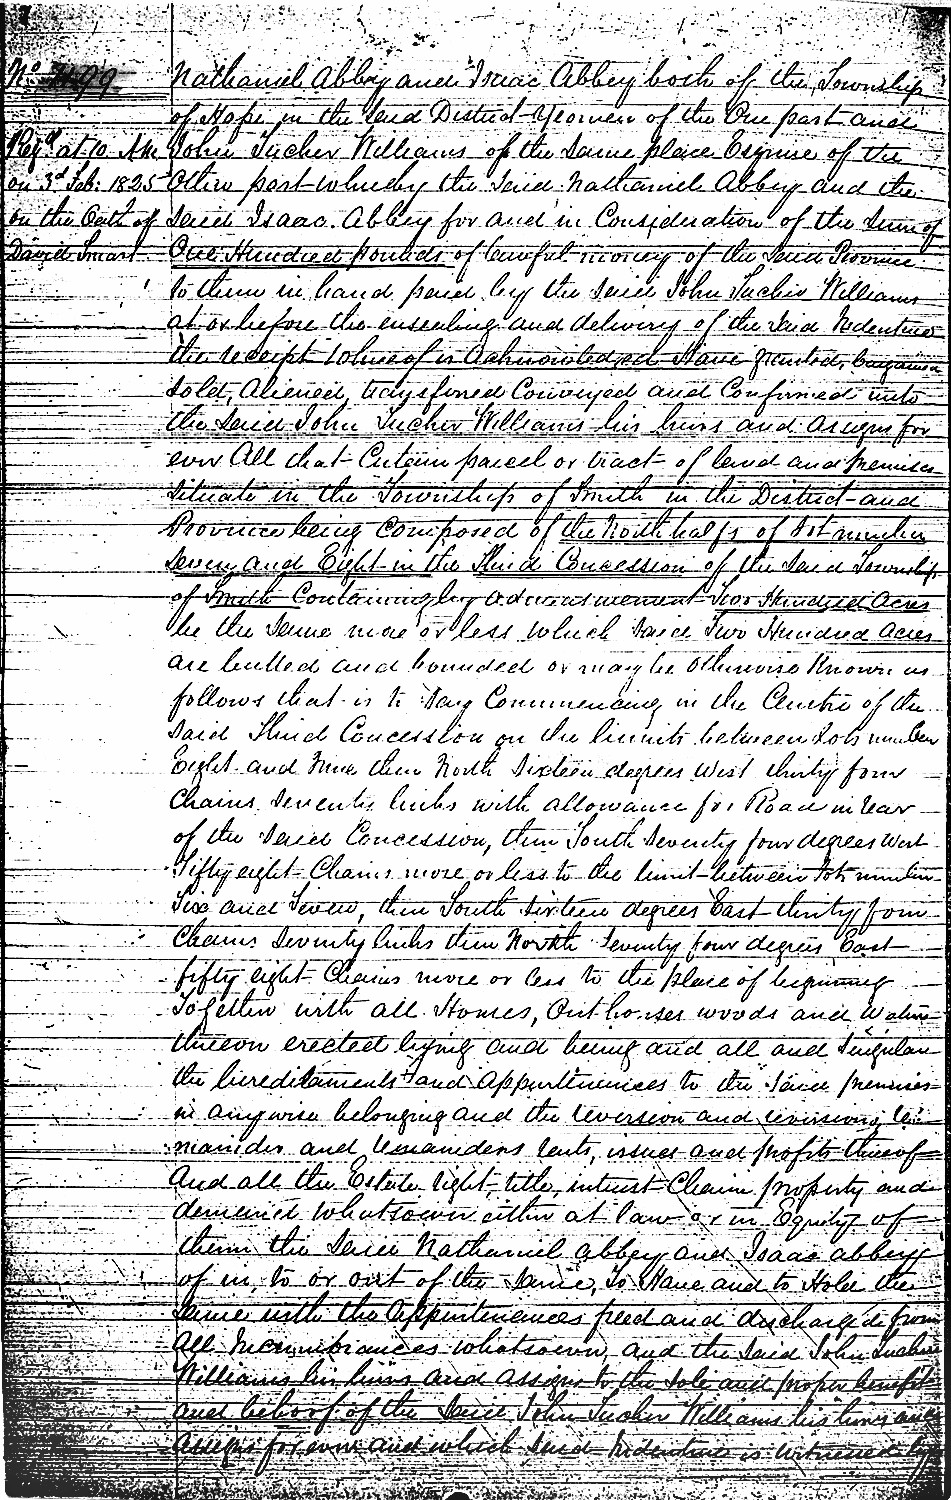 No 3499
Regd at 10 AM
on 3d Feb: 1825
on the Oath of
David Smart
Nathaniel Abbey and Isaac Abbey both of the Township
of Hope in the said District Yeomen of the One part and
John Tucker Williams of the same place Esquire of the
Other part whereby the said Nathaniel Abbey and the
said Isaac Abbey for and in Consideration of the sum of
One Hundred pounds of lawful money of the said Province
to them in hand paid by the said John Tucker Williams
at or before the ensealing and delivery of the said Indenture
the receipt whereof is acknowledged Have granted, bargained
sold, Aliened, transferred Conveyed and Confirmed unto
the said John Tucker Williams his heirs and assigns for
ever All that Certain parcel or tract of land and premises
situate in the Township of Smith in the District and
Province being Composed of the North halfs of Lot number
seven and Eight in the Third Concession of the said Township
of Smith Containing by admeasurement Two Hundred Acres
be the same more or less which said Two Hundred acres
are butted and bounded or may be otherwise Known as
follows that is to say Commencing in the Centre of the
said Third Concession on the limits between Lots number
Eight and Nine then North Sixteen degrees West thirty four
Chains seventy links with allowance for Road in rear
of the said Concession, then South seventy four degrees West
Fifty eight Chains more or less to the limit between Lots number
Six and Seven, then South sixteen degrees East thirty four
Chains seventy links then North seventy four degrees East
fifty eight Chains more or less to the place of beginning
Together with all Houses, Outhouses woods and waters
thereon erected lying and being and all and singular
the hereditaments and appurtenances to the said premises
in anywise belonging and the reversion and reversions, re-
mainder and remainders rents, issues and profits thereof
And all the Estate right, title, interest Claim property and
demand whatsoever either at law or in Equity of
them the said Nathaniel abbey and Isaac abbey
of in, to or out of the same, To Have and to Hold the
same with the appurtenances freed and discharged from
all Incumbrances whatsoever, and the said John Tucker
Williams his heirs and assigns to the sole and proper benefit
and behoof of the said John Tucker Williams his heirs and
assigns for ever and which said Indenture is witnessed by